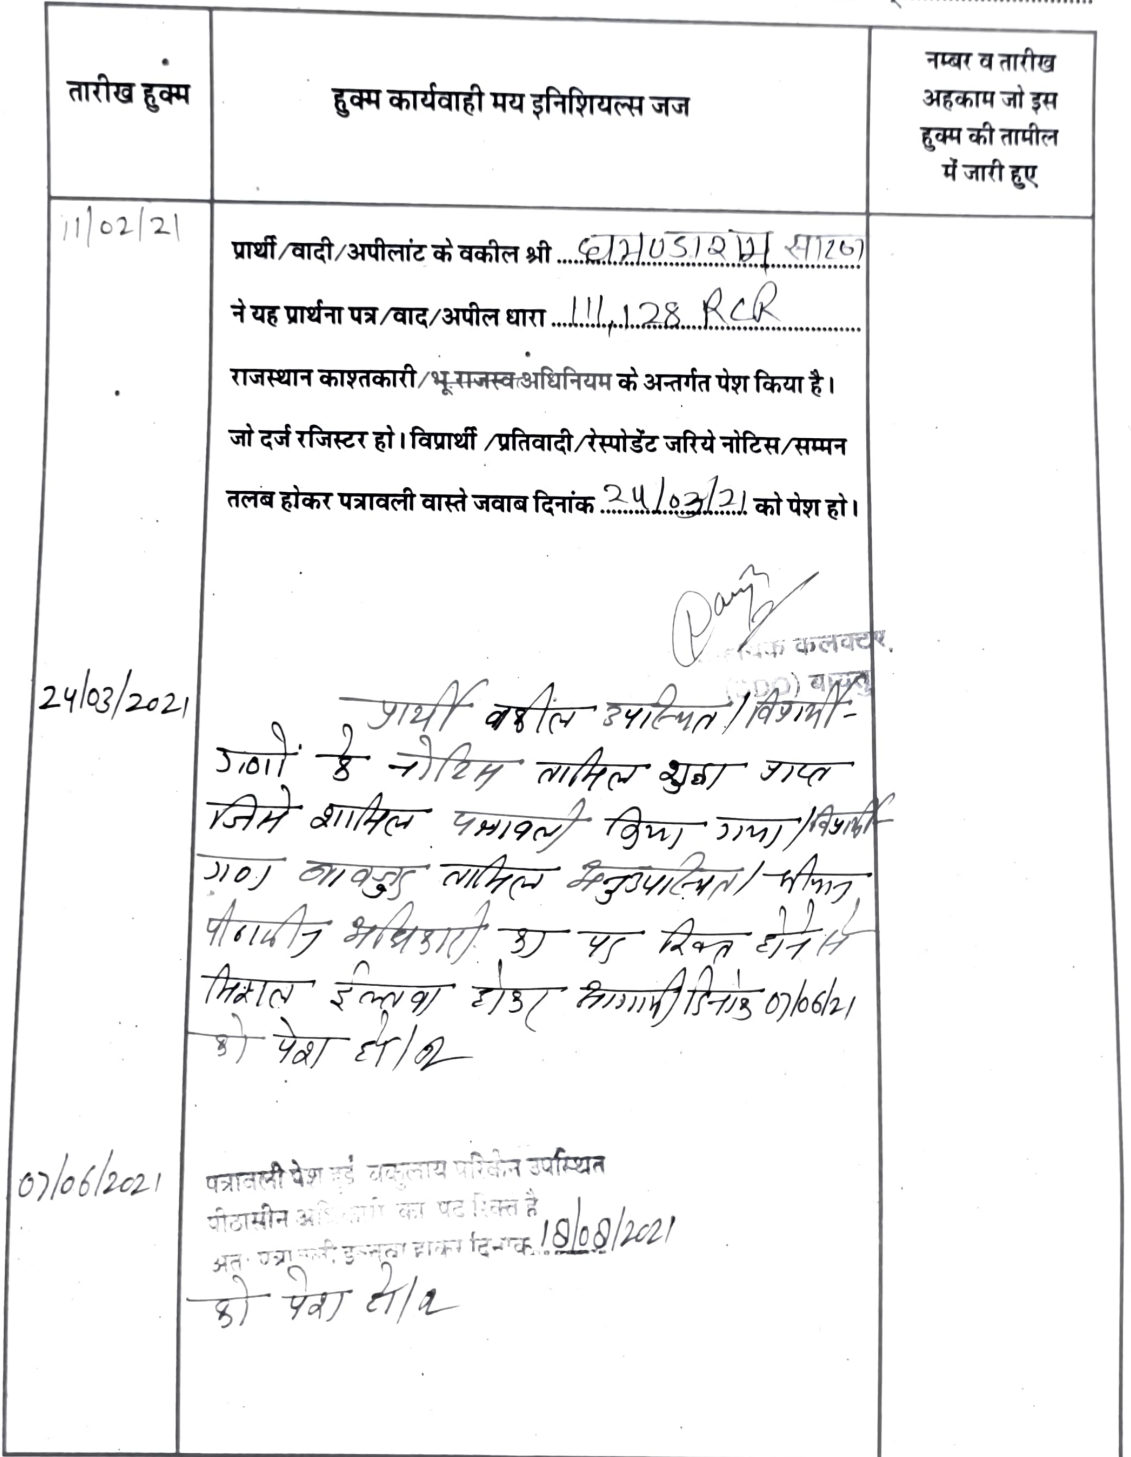 तारीख हुक्म
हुक्म कार्यवाही मय इनिशियल्स जज
नम्बर व तारीख
अहकाम जो इस
हुक्म की तामील
में जारी हुए
11/02/21
प्रार्थी/वादी/अपीलांट के वकील श्री
ने यह प्रार्थना पत्र/वाद/अपील धारा 111,128 RCR
राजस्थान काश्तकारी/भू राजस्व अधिनियम के अन्तर्गत पेश किया है।
जो दर्ज रजिस्टर हो। विप्रार्थी /प्रतिवादी/रेस्पोडेंट जरिये नोटिस/सम्मन
तलब होकर पत्रावली वास्ते जवाब दिनांक 24/03/21 को पेश हो।
कलक्टर,
24/03/2021
प्रार्थी वकील उपस्थित। विप्रार्थी-
गणों के नोटिस तामिल शुदा प्राप्त
जिसे शामिल पत्रावली किया गया। विप्रार्थी-
गण बावजूद तामिल अनुउपस्थित। श्रीमान
पीठासीन अधिकारी का पद रिक्त होने से
मिसल ईल्तवा होकर आगामी दिनांक 07/06/21
को पेश हो।
07/06/2021
पत्रावली पेश हुई उपस्थित
पीठासीन अधिकारी का पद रिक्त है
अतः पत्रावली होकर दिनांक 18/08/2021
को पेश हो।